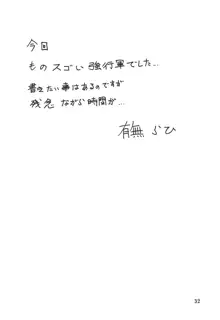 今回
ものスゴい強行軍でした…
書きたい事はあるのですが
残念ながら時間が…
有無らひ
32